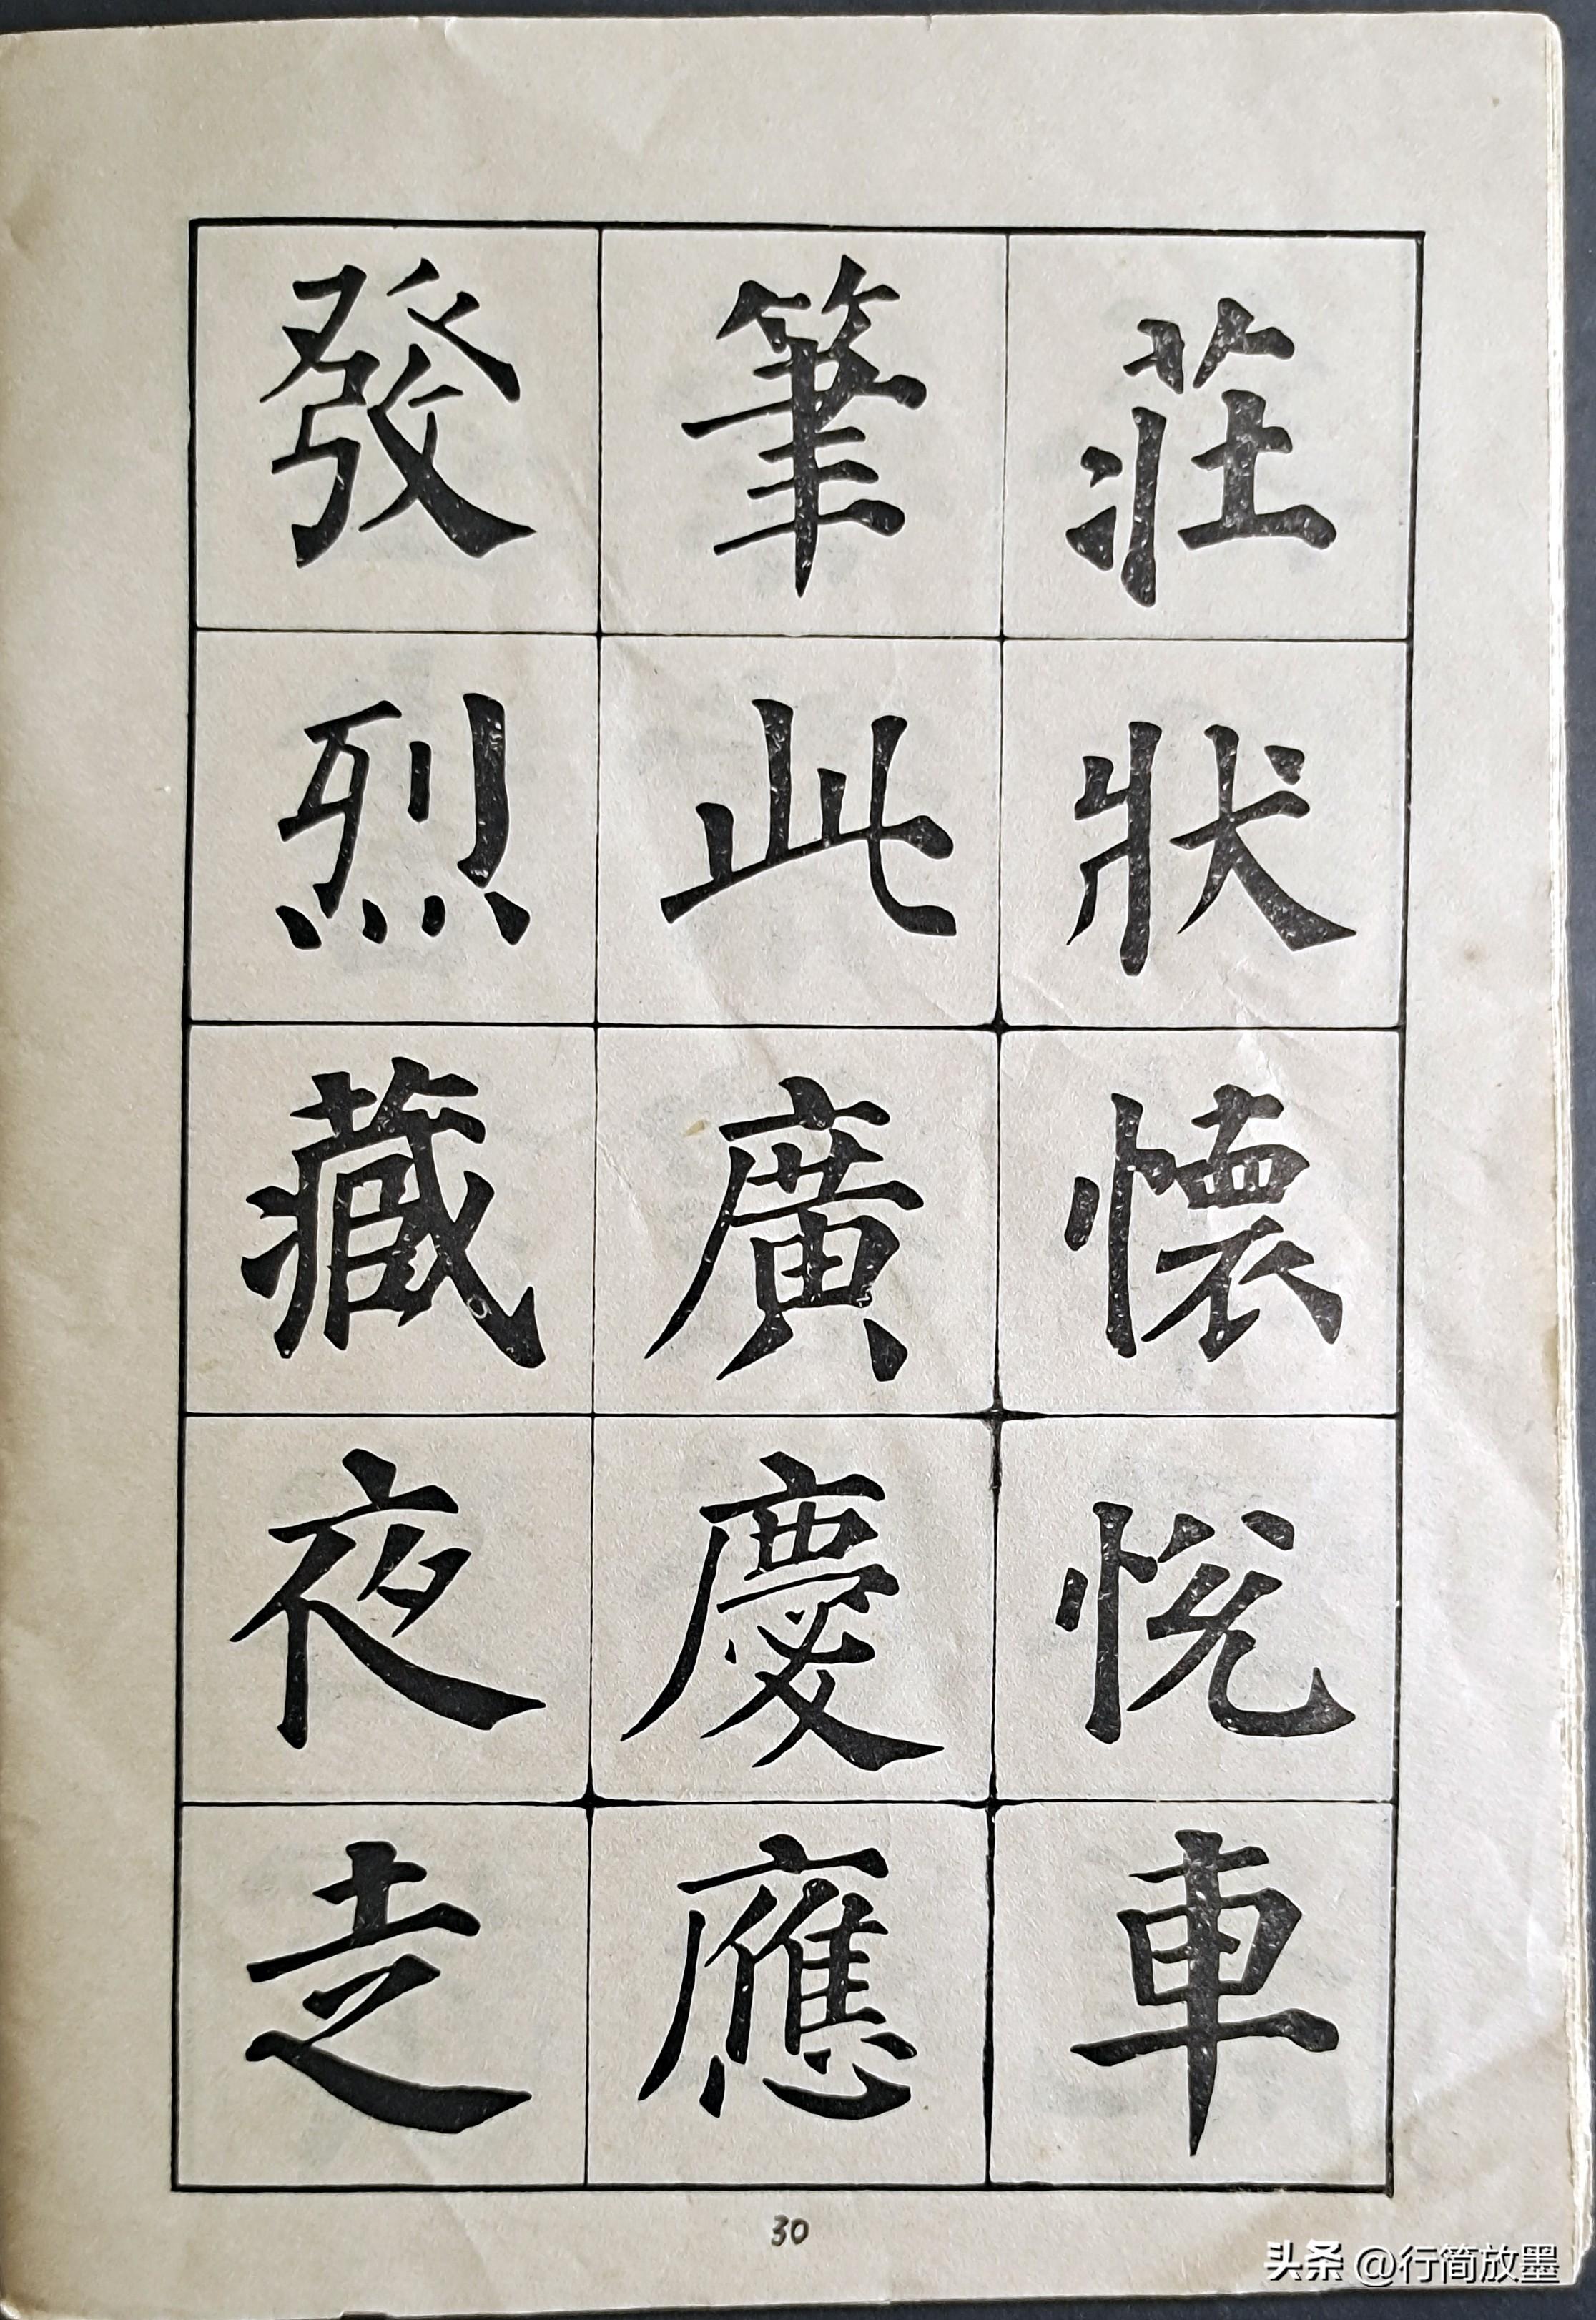 莊狀懷悅車
筆此廣慶應
發烈藏夜走
30
头条 @行简放墨